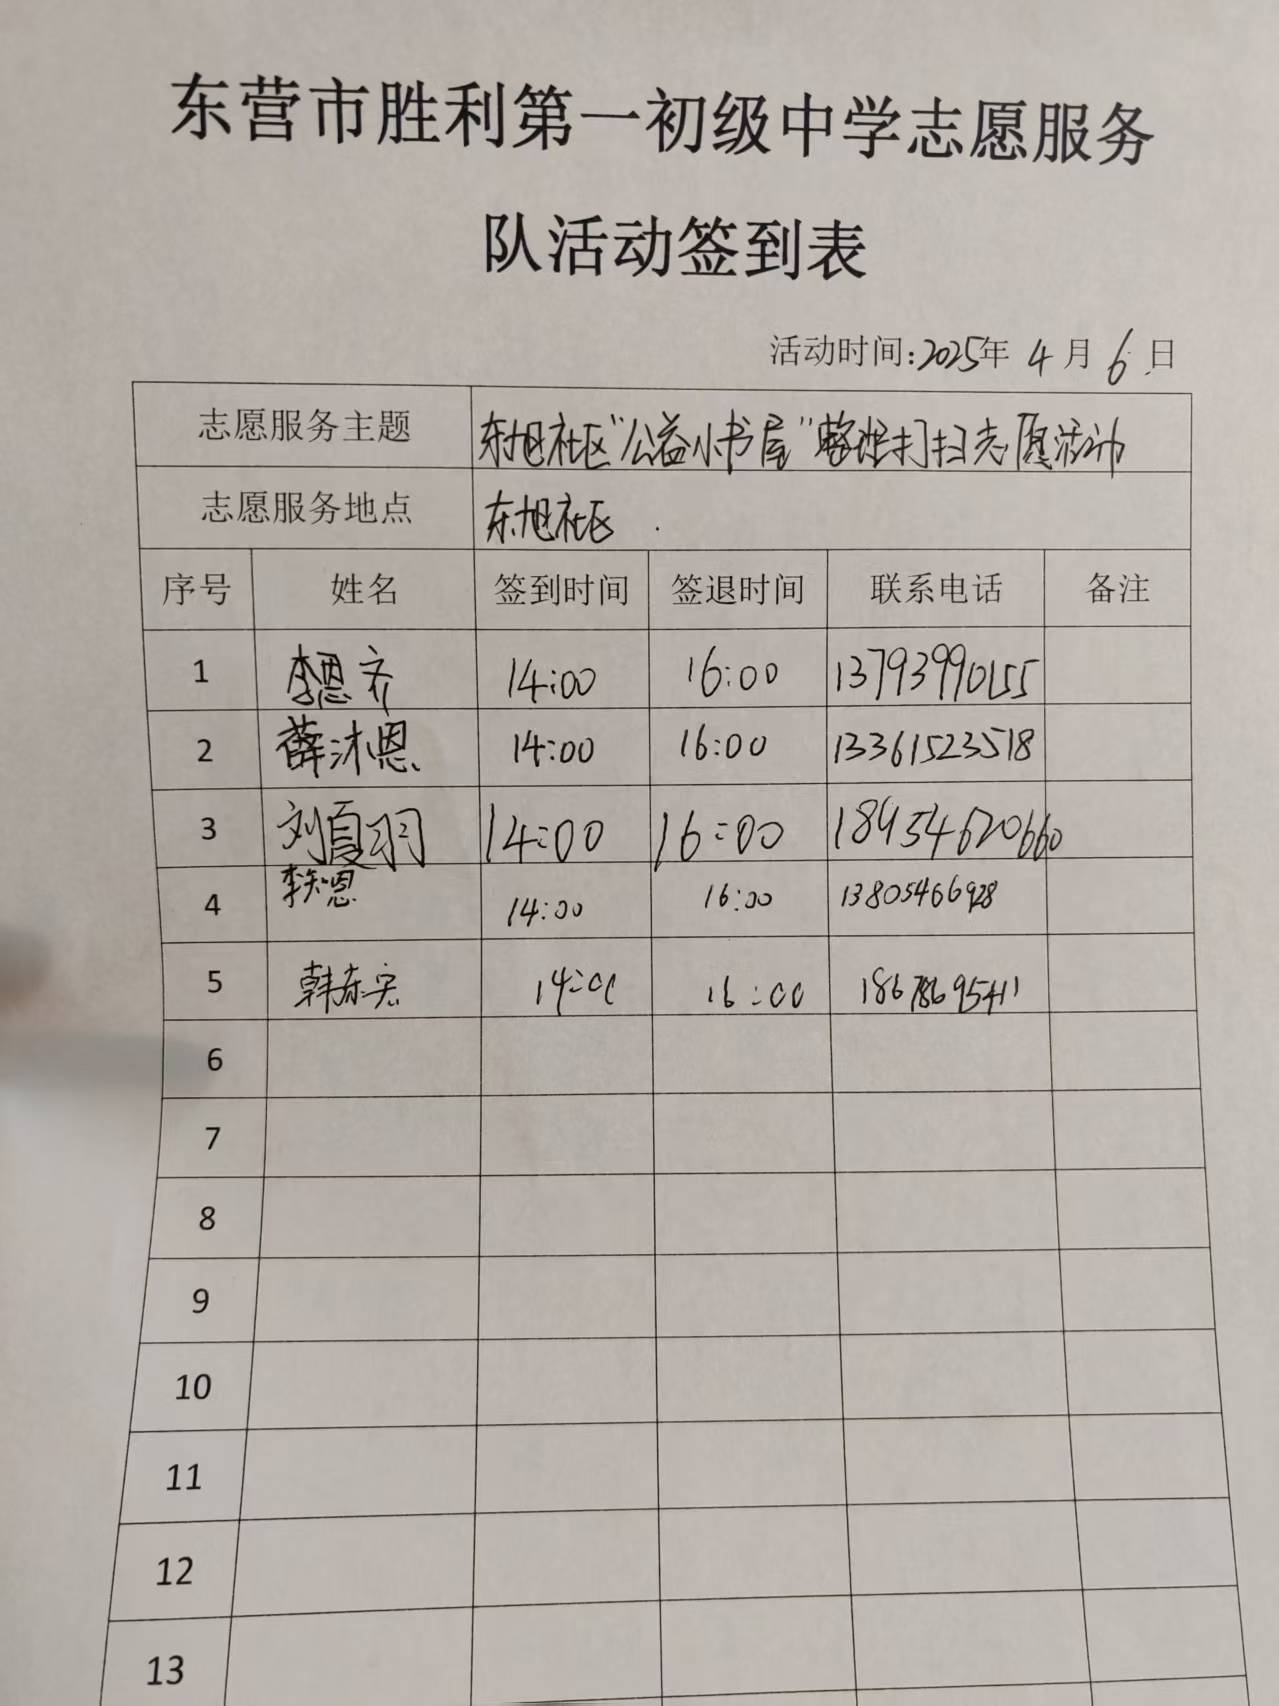 东营市胜利第一初级中学志愿服务
队活动签到表
活动时间:2025年 4 月 6 日
志愿服务主题 东旭社区“公益小书屋”整理打扫志愿活动
志愿服务地点 东旭社区
序号 姓名 签到时间 签退时间 联系电话 备注
1 李恩齐 14:00 16:00 13793990155
2 薛沐恩 14:00 16:00 13361523518
3 刘夏羽 14:00 16:00 18954620660
4 李知恩 14:00 16:00 13805466928
5 韩东宏 14:00 16:00 18678695411
6
7
8
9
10
11
12
13